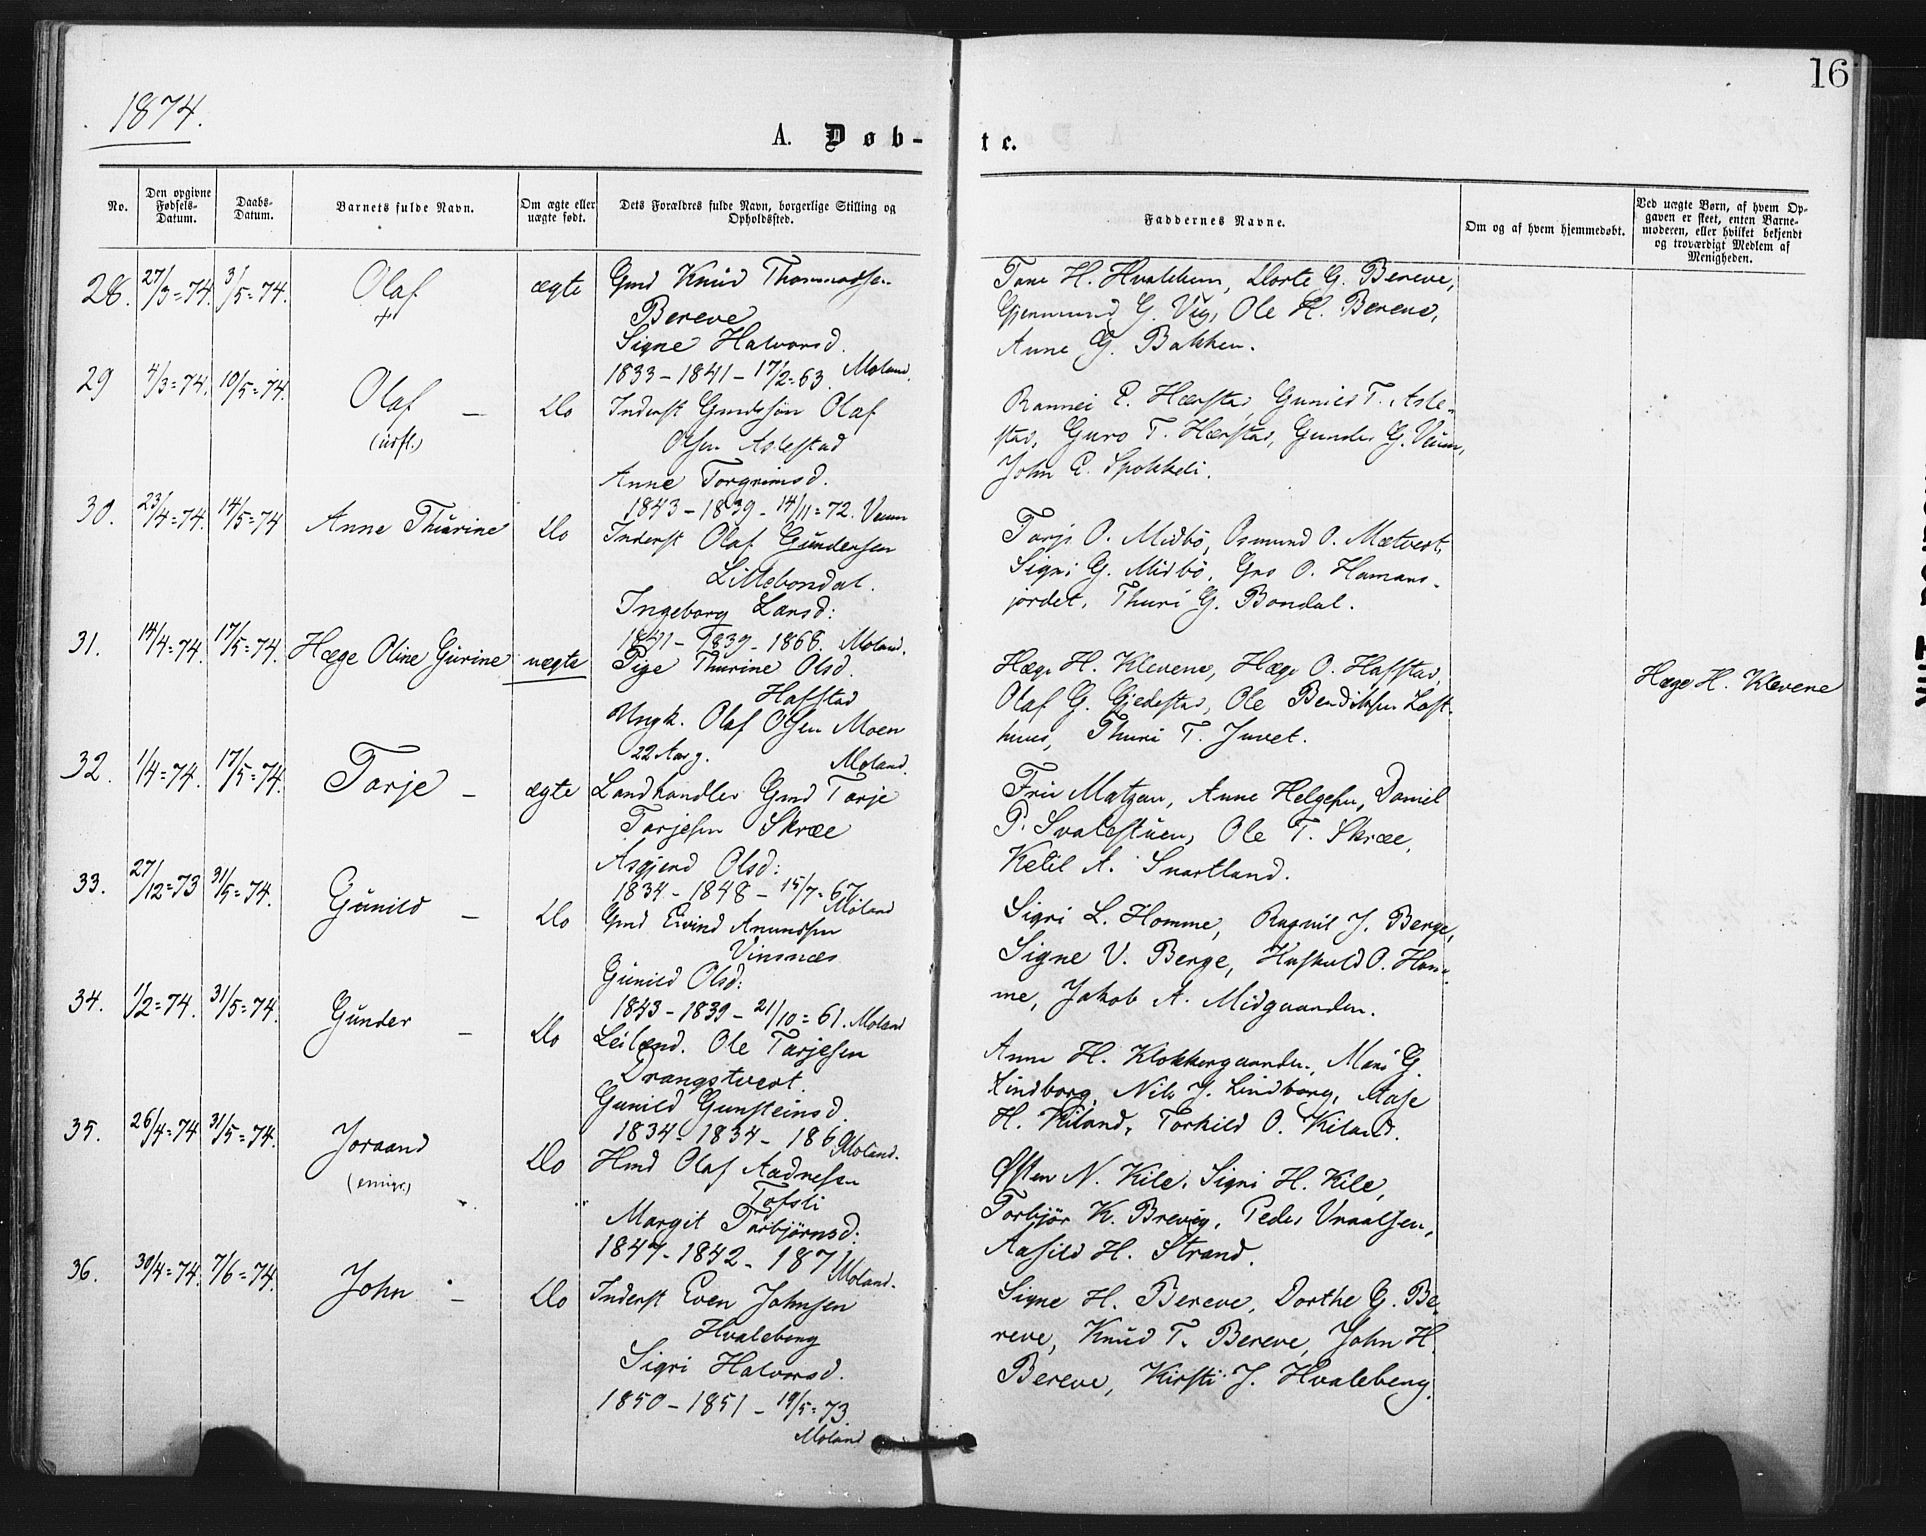 16
1874.
A. Døb-
te.
No.
Den opgivne Fødsels-Datum.
Daabs-Datum.
Barnets fulde Navn.
Om ægte eller uægte født.
Dets Forældres fulde Navn, borgerlige Stilling og Opholdssted.
Faddernes Navne.
Om og af hvem hjemmedøbt.
Ved uægte Børn, af hvem Opgaven er skeet, enten Barnemoderen, eller hvilket bekjendt og troværdigt Medlem af Menigheden.
28. 27/3=74. 3/5=74. Olaf + ægte
Gmd Knud
Bereve
Signe Halvorsd.
1833-1841-17/2=63. Moland.
Tone H. Dorte G. Bereve,
G. Vig, Ole H. Bereve,
Anne G. Bakken.
29 4/3=74. 10/5=74. Olaf — Do
(udfl.)
Inderst Gmdssøn Olaf
Olsen Aslestad
Anne Torgrimsd.
1843-1839-14/11=72. Veum
Rannei E. Hærstad, Gunild T. Asle-
stad, Guro T. Hærstad, Gunder G. Veum,
John E. Spokkeli.
30. 23/4=74. 14/5=74 Anne Thurine Do
Inderst Olaf Gundersen
Littebondal.
Ingeborg Larsd:
1841-1839-1868. Moland.
Tarje O. Midbö, Osmund O.
Sigri G. Midbö, Gro O. Hamans-
jordet, Thuri G. Bondal.
31. 14/4=74. 17/5=74. Hæge Oline Gurine uægte
Pige Thurine Olsd.
Hafstad
Ungk. Olaf Olsen Moen
22 Aar g. Moland.
Hæge H. Klevene, Hæge O. Hafstad,
Olaf G. Gjedestad, Ole Bendiksen Loft-
huus, Thuri T. Juvet.
Hæge H. Klevene
32. 1/4=74. 17/5=74. Tarje — ægte
Landhandler Gmd Tarje
Tarjesen Skræe
Asgjerd Olsd:
1834-1848-15/7=67
Moland
Fru Matzau, Anne Helgesen, Daniel
P. Svalestuen, Ole T. Skræe,
Ketil A. Svartland.
33. 27/12=73 31/5=74. Gunild — Do
Gmd Eivind Anundsen
Vinsnæs
Gunild Olsd:
1843-1839-21/10=61. Moland
Sigri L. Homme, Ragnil J. Berge,
Signe V. Berge, O. Hom-
me, Jakob A. Midgaarden.
34. 1/2=74. 31/5=74. Gunder — Do
Leilænd. Ole Tarjesen
Drangstveit.
Gunild Gunsteinsd.
1834-1834- Moland.
Anne H. Klokkergaarden, Mari G.
Lindborg, Nils J. Lindborg, Aase
H. Kiland, Torkild O. Kiland.
35. 26/4=74 31/5=74. Joraand Do
(emigr.)
Hmd Olaf Aadnesen
Tofsli
Margit Torbjørnsd:
1847-1842-1871
Moland.
Østen N. Kile, Sigri H. Kile,
Torbjør K. Brevig, Peder Vraalsen,
Aasild H. Strand.
36. 30/4=74. 7/6=74. John — Do
Inderst Even Johnsen
Hvaleberg
Sigri Halvorsd.
1850-1851-19/5=73.
Moland
Signe H. Bereve, Dorthe G. Be-
reve, Knud T. Bereve, John H.
Bereve, Kirsti J. Hvaleberg.